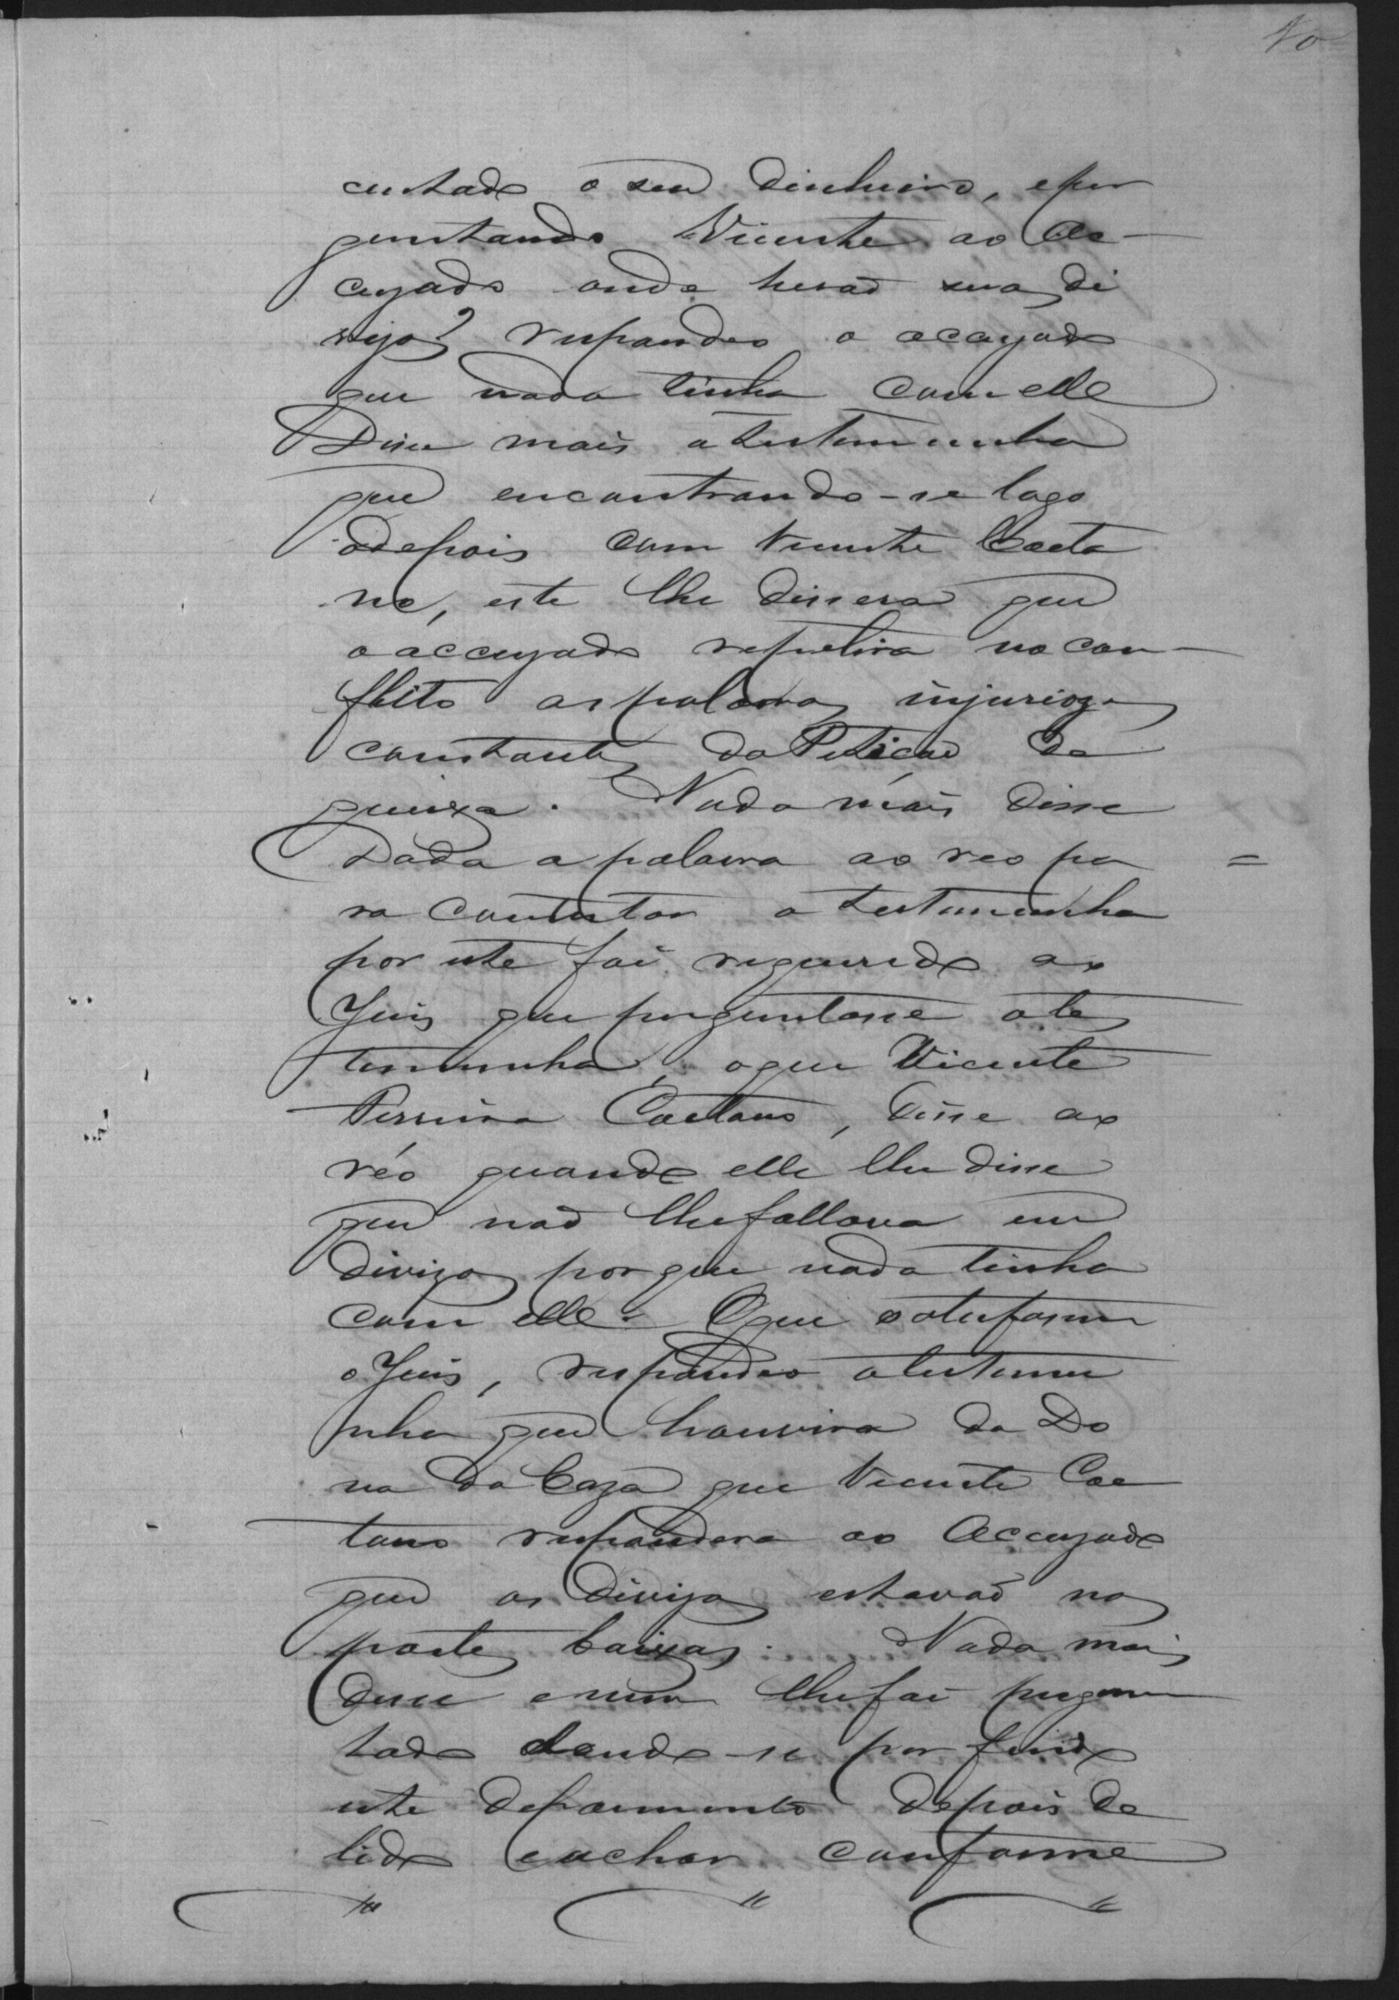 10
custado o seu dinheiro, e per
guntando Vicente ao Ac-
cuzado onde herão suas di
vizas? respondeo o acuzado
que nada tinha com elle
Disse mais a testemunha
que encontrando-se logo
depois com Vicente Caeta
no, este lhe dissera que
o accuzado repetira no con-
flito as palavras injuriozas
constantes da Petição de
queixa. Nada mais disse
Dada a palavra ao reo pa =
ra contestar a testemunha
por este foi requerido ao
Juis que perguntasse a tes
temunha, o que Vicente
Pereira Caetano, disse ao
réo quando elle lhe disse
que não lhe fallava em
divizas porque nada tinha
com elle. O que
o Juis, respondeo a testemu
nha que houvira da Do
na da Caza que Vicente Cae
tano respondera ao Accuzado
que as divizas estavão nas
partes baixas. Nada mais
disse e nem lhe foi pergun
tado dando-se por findo
este depoimento depois de
lido e achar conforme